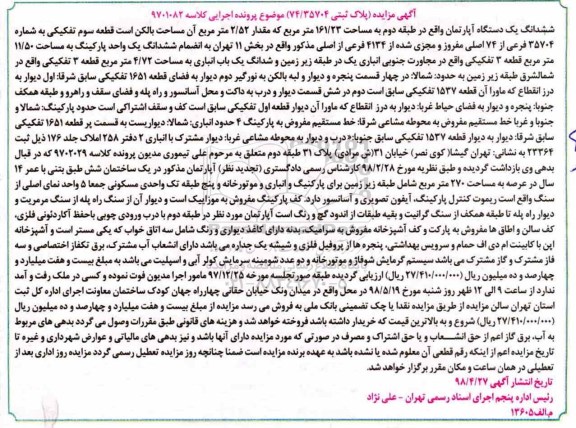 آگهی مزایده (پلاک ثبتی ۷۴/۳۵۷۰۴) موضوع پرونده اجرایی کلاسه ۹۷۰۱۰۸۲
ششدانگ یک دستگاه آپارتمان واقع در طبقه دوم به مساحت ۱۶۱/۲۳ متر مربع که مقدار ۲/۵۲ متر مربع آن مساحت بالکن است قطعه سوم تفکیکی به شماره
۳۵۷۰۴ فرعی از ۷۴ اصلی مفروز و مجزی شده از ۴۱۳۴ فرعی از اصلی مذکور واقع در بخش ۱۱ تهران به انضمام ششدانگ یک واحد پارکینگ به مساحت ۱۱/۵۰
متر مربع قطعه ۳ تفکیکی واقع در مجاورت جنوبی انباری یک در طبقه زیر زمین و شدانگ یک باب انباری به مساحت ۴/۷۲ متر مربع قطعه ۳ تفکیکی واقع در
شمالشرق طبقه زیر زمین به حدود: شمالا: در چهار قسمت پنجره و دیوار و لبه بالکن به نورگیر دوم دیوار به فضای قطعه ۱۶۵۱ تفکیکی سابق شرقا: اول دیوار به
درز انقطاع که ماورا آن قطعه ۱۵۳۷ تفکیکی سابق است دوم در شش قسمت دیوار و درب به داکت و محل آسانسور و راه پله و فضای سقف و راهرو و طبقه همکف
جنوبا: پنجره و دیوار به فضای حیاط غربا: دیوار به درز انقطاع که ماورا آن دیوار قطعه اول تفکیکی سابق است کف و سقف اشتراکی است حدود پارکینگ: شمالا و
جنوبا و غربا خط مستقیم مفروض به محوطه مشاعی شرقا: خط مستقیم مفروض به پارکینگ ۴ حدود انباری: شمالا: دیواریست به قسمت پر قطعه ۱۶۵۱ تفکیکی
سابق شرقا: دیوار به دیوار قطعه ۱۵۳۷ تفکیکی سابق جنوبا: درب و دیوار به محوطه مشاعی غربا: دیوار مشترک با انباری ۲ دفتر ۲۵۸ املاک جلد ۱۷۶ ذیل ثبت
۲۳۳۶۴ به نشانی: تهران گیشا( کوی نصر) خیابان ۳۱(ش مرادی) پلاک ۳۱ طبقه دوم متعلق به مرحوم علی تیموری مدیون پرونده کلاسه ۹۷۰۲۰۲۹ که در قبال
بدهی وی بازداشت گردیده و طبق نظریه مورخ ۹۸/۲/۲۸ کارشناس رسمی دادگستری (تجدید نظر) آپارتمان مذکور در یک ساختمان شش طبق بتنی با عمر ۱۴
سال در عرصه به مساحت ۲۷۰ متر مربع شامل طبقه زیر زمین برای پارکنیگ و انباری و موتورخانه و پنج طبقه تک واحدی مسکونی جمعا ۵ واحد نمای اصلی از
سنگ واقع است ریموت کنترل پارکینگ، آیفون تصویری و آسانسور دارد. کف پارکینگ مفروش به موزاییک است و دیوار آن از سنگ راه پله از سنگ مرمریت و
دیوار راه پله تا طبقه همکف از سنگ گرانیت و بقیه طبقات از اندود گچ و رنگ است آپارتمان مورد نظر در طبقه دوم با درب ورودی چوبی باحفظ آکاردئونی فلزی،
کف سالن و اطاق ها مفروش به پارکت و کف آشپزخانه مفروش به سرامیک، بدنه دارای کاغذ دیواری و رنگ شامل سه اتاق خواب که یکی مستر است و آشپزخانه
اپن با کابینت ام دی اف حمام و سرویس بهداشتی، پنجره ها از پروفیل فلزی و شیشه یک جداره می باشد دارای انشعاب آب مشترک، برق تکفاز اختصاصی و سه
فاز مشترک و گاز مشترک می باشد سیستم گرمایش شوفاژ و موتورخانه و دو عدد شومینه سرمایش کولر آبی و اسپلیت می باشد به مبلغ بیست و هفت میلیارد و
چهارصد و ده میلیون ریال (۲۷/۴۱۰/۰۰۰/۰۰۰ ریال) ارزیابی گردیده طبقه صورتجلسه مورخه ۹۷/۱۲/۲۵ مامور اجرا مدیون فوت نموده و کسی در ملک رفت و آمد
ندارد از ساعت ۹ الی ۱۲ ظهر روز شنبه مورخ ۹۸/۵/۱۹ در محل واقع در میدان ونک خیابان حقانی چهارراه جهان کودک ساختمان معاونت اجرای اداره کل ثبت
استان تهران سالن مزایده از طریق مزایده نقدا یا چک تضمینی بانک ملی به فروش می رسد مزایده از مبلغ بیست و هفت میلیارد و چهارصد و ده میلیون ریال
(۲۷/۴۱۰/۰۰۰/۰۰۰ ریال) شروع و به بالاترین قیمت که خریدار داشته باشد فروخته خواهد شد و هزینه های قانونی طبق مقررات وصول می گردد بدهی های مربوط
به آب، برق گاز اعم از حق انشـــعاب و یا حق اشتراک و مصرف در صورتی که مورد مزایده دارای آنها باشد و نیز بدهی های مالیاتی و عوارض شهرداری و غیره تا
تاریخ مزایده اعم از اینکه رقم قطعی آن معلوم شده یا نشده باشد به عهده برنده مزایده است ضمنا چنانچه روز مزایده تعطیل رسمی گردد مزایده روز اداری بعد از
تعطیلی در همان ساعت و مکان مقرر برگزار خواهد شد.
تاریخ انتشار آگهی ۹۸/۴/۲۷
رئیس اداره پنجم اجرای اسناد رسمی تهران - علی نژاد
م.الف۱۳۶۰۵